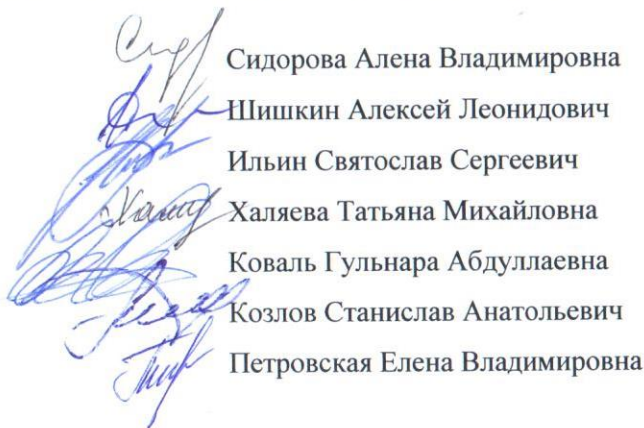 Сидорова Алена Владимировна
Шишкин Алексей Леонидович
Ильин Святослав Сергеевич
Халяева Татьяна Михайловна
Коваль Гульнара Абдуллаевна
Козлов Станислав Анатольевич
Петровская Елена Владимировна